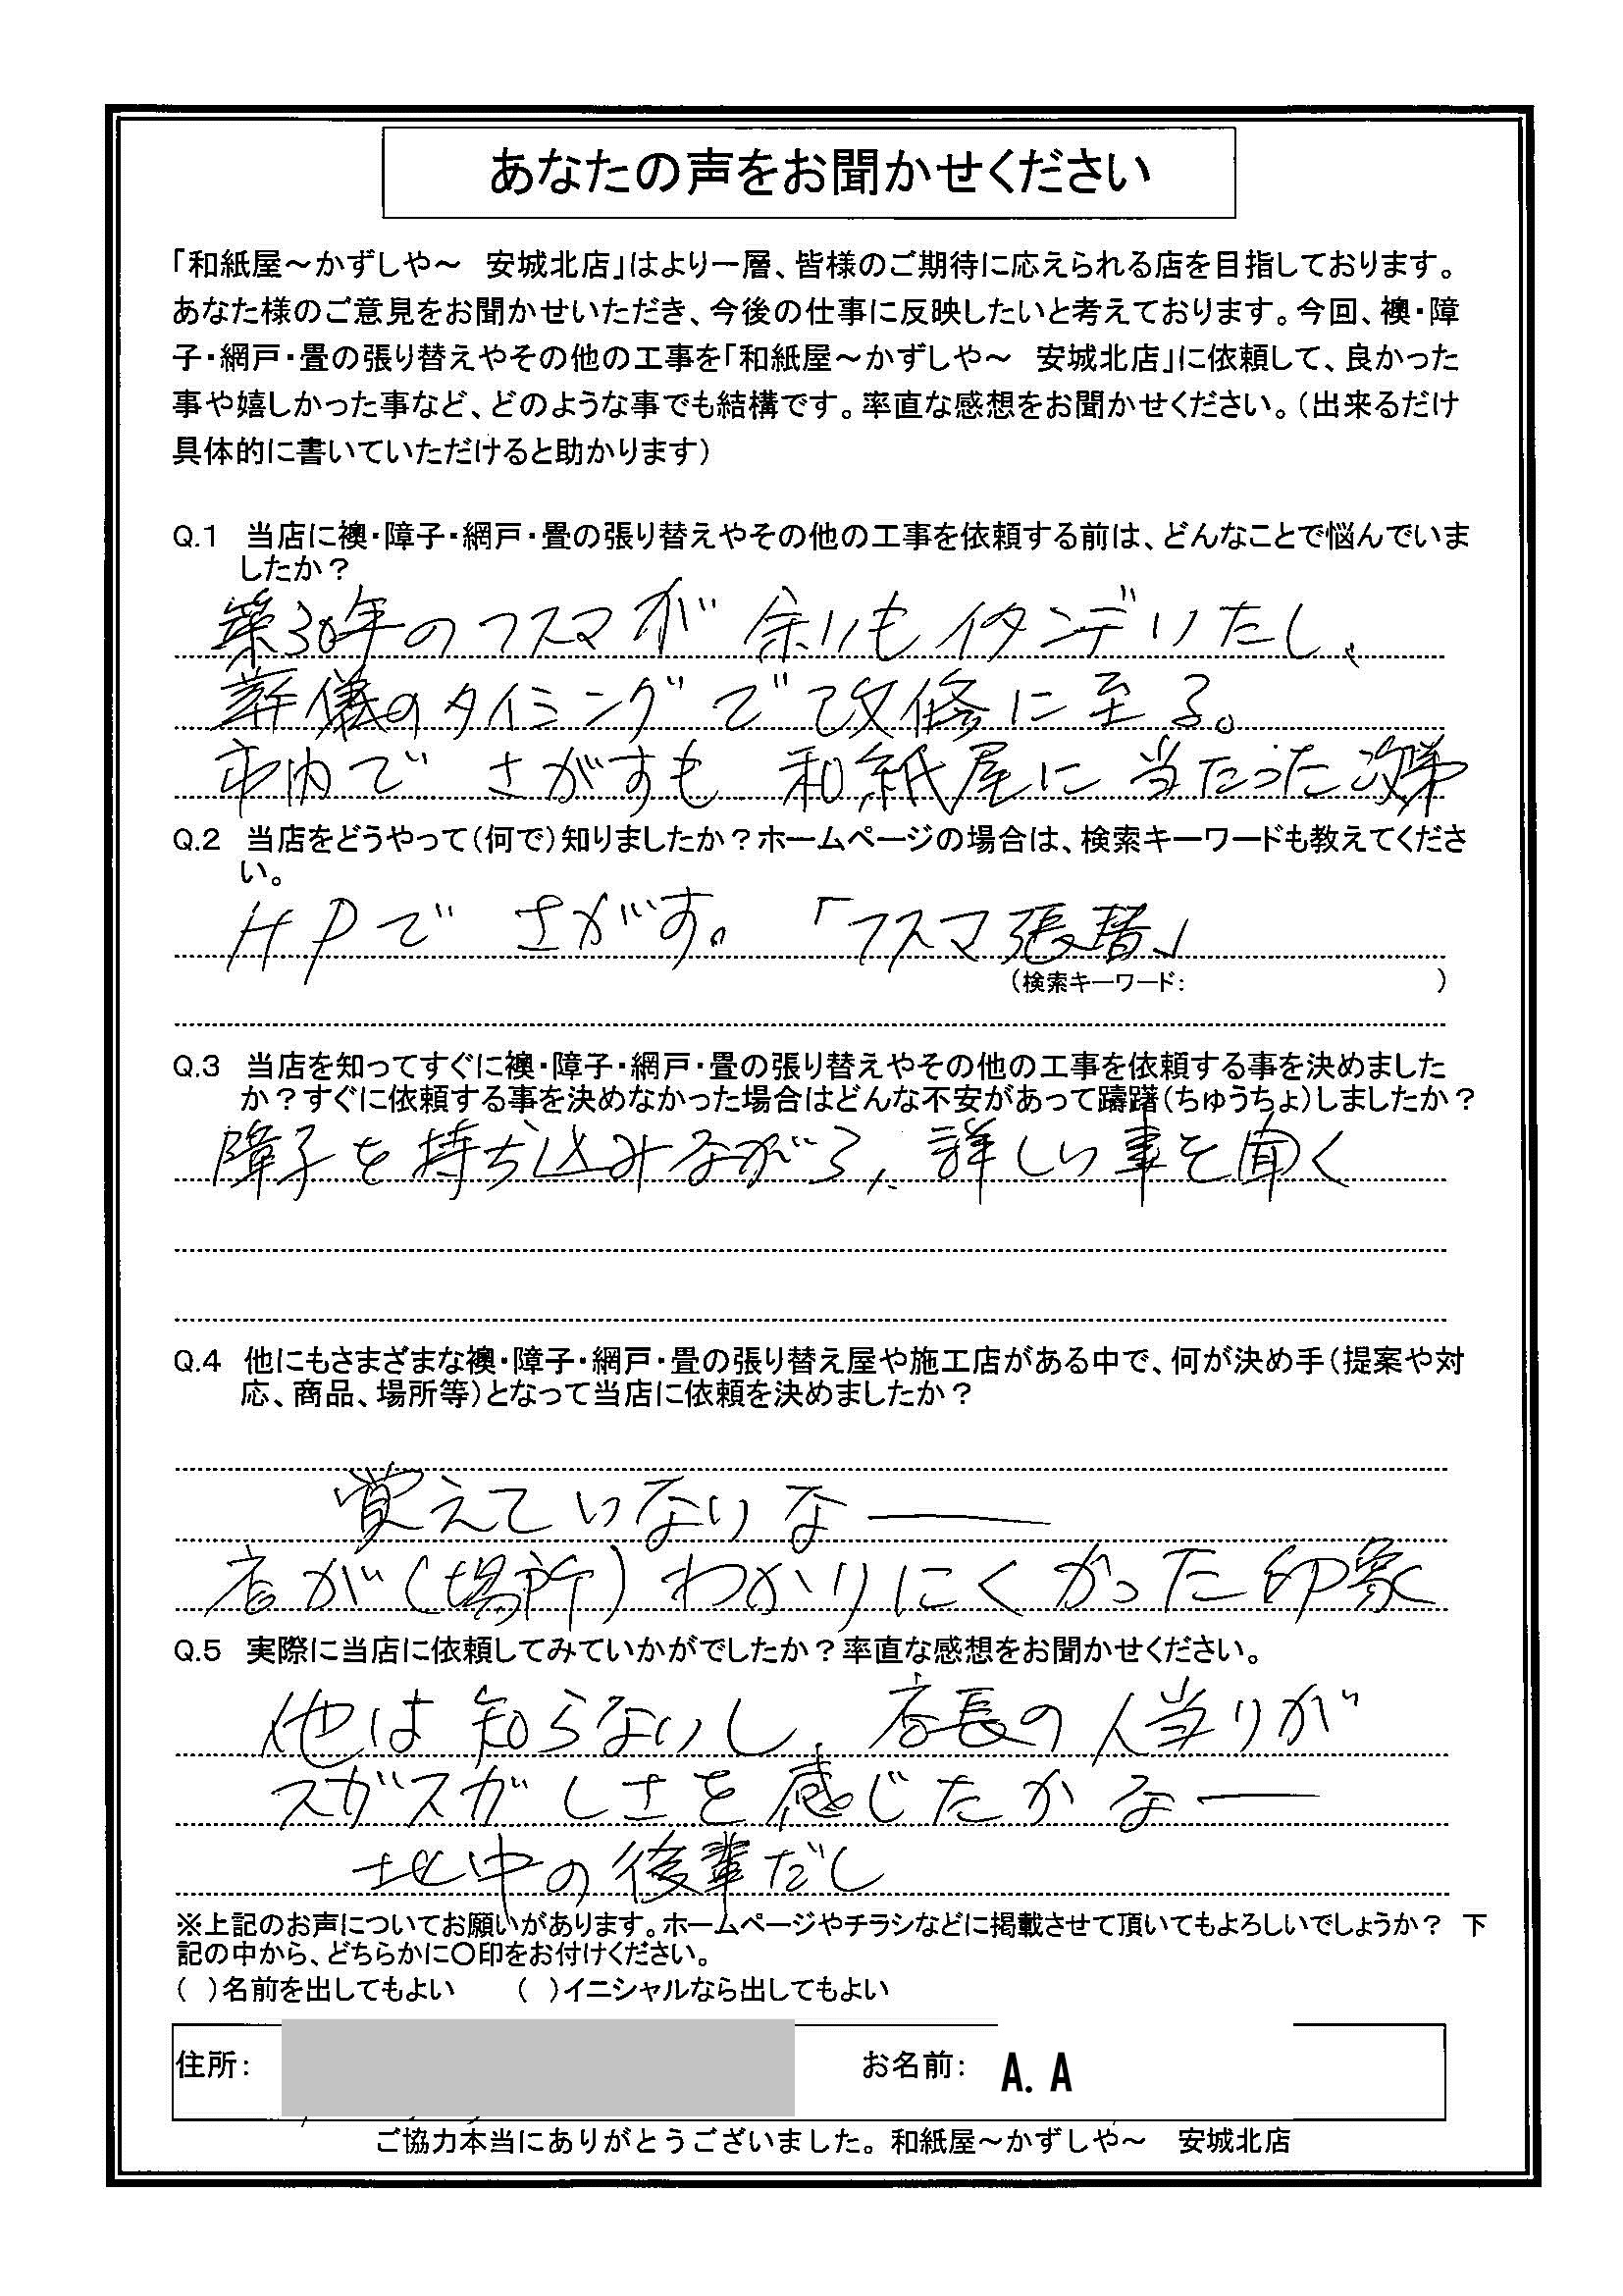 あなたの声をお聞かせください
「和紙屋～かずしや～　安城北店」はより一層、皆様のご期待に応えられる店を目指しております。
あなた様のご意見をお聞かせいただき、今後の仕事に反映したいと考えております。今回、襖・障
子・網戸・畳の張り替えやその他の工事を「和紙屋～かずしや～　安城北店」に依頼して、良かった
事や嬉しかった事など、どのような事でも結構です。率直な感想をお聞かせください。（出来るだけ
具体的に書いていただけると助かります）
Q.1　当店に襖・障子・網戸・畳の張り替えやその他の工事を依頼する前は、どんなことで悩んでいま
したか？
築30年のフスマが 余りもイタンデいたし、
葬儀のタイミングで改修に至る。
市内で さがすも 和紙屋に当たった次第
Q.2　当店をどうやって（何で）知りましたか？ホームページの場合は、検索キーワードも教えてくださ
い。
HPで さがす。「フスマ張替」
（検索キーワード：　　　　　）
Q.3　当店を知ってすぐに襖・障子・網戸・畳の張り替えやその他の工事を依頼する事を決めました
か？すぐに依頼する事を決めなかった場合はどんな不安があって躊躇（ちゅうちょ）しましたか？
障子を持ち込みながら、詳しい事を聞く
Q.4　他にもさまざまな襖・障子・網戸・畳の張り替え屋や施工店がある中で、何が決め手（提案や対
応、商品、場所等）となって当店に依頼を決めましたか？
覚えていないなー
店が（場所）わかりにくかった印象
Q.5　実際に当店に依頼してみていかがでしたか？率直な感想をお聞かせください。
他は知らないし、店長の人当りが
スガスガしさを感じたかなー
北中の後輩だし
※上記のお声についてお願いがあります。ホームページやチラシなどに掲載させて頂いてもよろしいでしょうか？　下
記の中から、どちらかに〇印をお付けください。
（　）名前を出してもよい　　（　）イニシャルなら出してもよい
住所：　お名前： A. A
ご協力本当にありがとうございました。和紙屋～かずしや～　安城北店